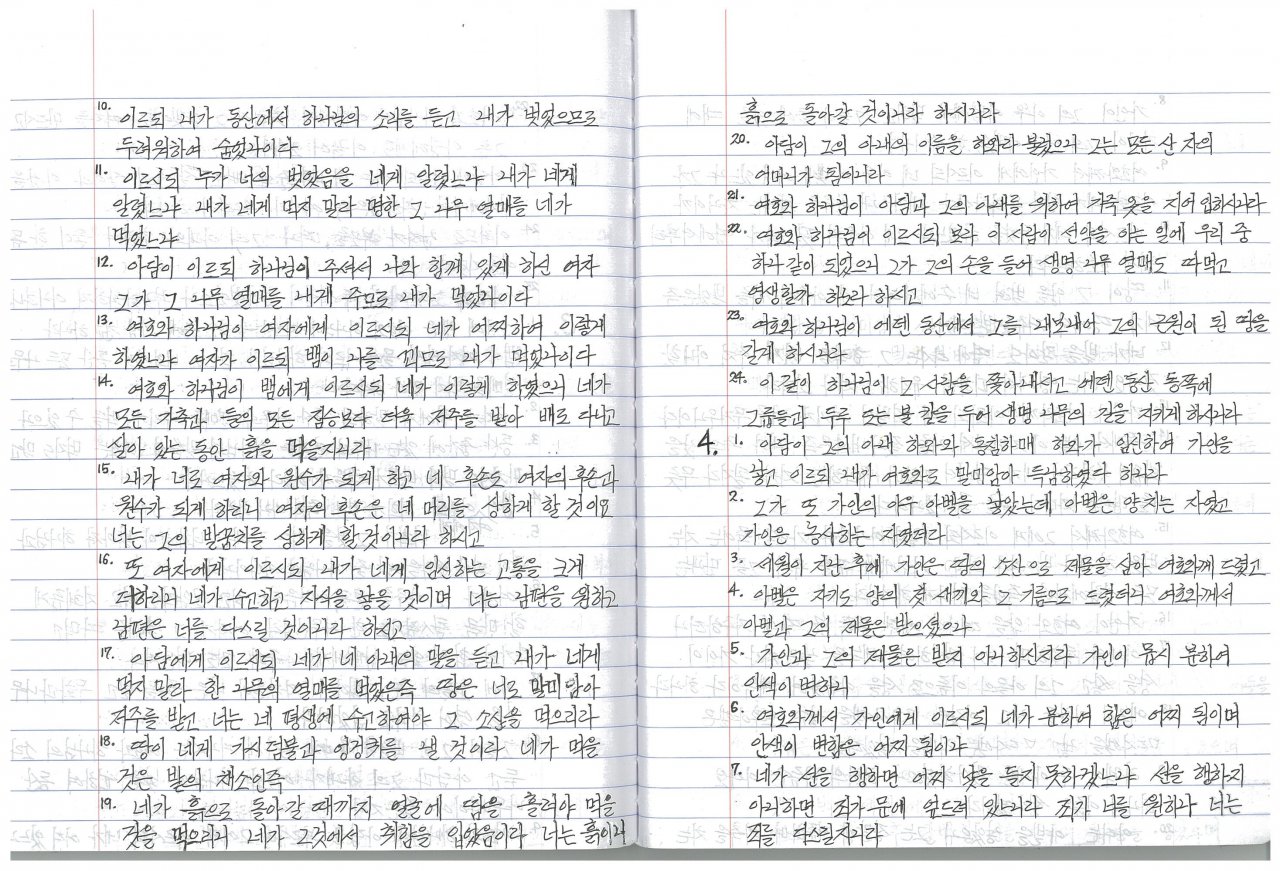 10. 이르되 내가 동산에서 하나님의 소리를 듣고 내가 벗었으므로
두려워하여 숨었나이다
11. 이르시되 누가 너의 벗었음을 네게 알렸느냐 내가 네게
알렸느냐 내가 네게 먹지 말라 명한 그 나무 열매를 네가
먹었느냐
12. 아담이 이르되 하나님이 주셔서 나와 함께 있게 하신 여자
그가 그 나무 열매를 내게 주므로 내가 먹었나이다
13. 여호와 하나님이 여자에게 이르시되 네가 어찌하여 이렇게
하였느냐 여자가 이르되 뱀이 나를 꾀므로 내가 먹었나이다
14. 여호와 하나님이 뱀에게 이르시되 네가 이렇게 하였으니 네가
모든 가축과 들의 모든 짐승보다 더욱 저주를 받아 배로 다니고
살아 있는 동안 흙을 먹을지니라
15. 내가 너로 여자와 원수가 되게 하고 네 후손도 여자의 후손과
원수가 되게 하리니 여자의 후손은 네 머리를 상하게 할 것이요
너는 그의 발꿈치를 상하게 할 것이니라 하시고
16. 또 여자에게 이르시되 내가 네게 임신하는 고통을 크게
더하리니 네가 수고하고 자식을 낳을 것이며 너는 남편을 원하고
남편은 너를 다스릴 것이니라 하시고
17. 아담에게 이르시되 네가 네 아내의 말을 듣고 내가 네게
먹지 말라 한 나무의 열매를 먹었은즉 땅은 너로 말미암아
저주를 받고 너는 네 평생에 수고하여야 그 소산을 먹으리라
18. 땅이 네게 가시덤불과 엉겅퀴를 낼 것이라 네가 먹을
것은 밭의 채소인즉
19. 네가 흙으로 돌아갈 때까지 얼굴에 땀을 흘려야 먹을
것을 먹으리니 네가 그것에서 취함을 입었음이라 너는 흙이니
흙으로 돌아갈 것이니라 하시니라
20. 아담이 그의 아내의 이름을 하와라 불렀으니 그는 모든 산 자의
어머니가 됨이니라
21. 여호와 하나님이 아담과 그의 아내를 위하여 가죽 옷을 지어 입히시니라
22. 여호와 하나님이 이르시되 보라 이 사람이 선악을 아는 일에 우리 중
하나 같이 되었으니 그가 그의 손을 들어 생명 나무 열매도 따먹고
영생할까 하노라 하시고
23. 여호와 하나님이 에덴 동산에서 그를 내보내어 그의 근원이 된 땅을
갈게 하시니라
24. 이같이 하나님이 그 사람을 쫓아내시고 에덴 동산 동쪽에
그룹들과 두루 도는 불 칼을 두어 생명 나무의 길을 지키게 하시니라
4. 1. 아담이 그의 아내 하와와 동침하매 하와가 임신하여 가인을
낳고 이르되 내가 여호와로 말미암아 득남하였다 하니라
2. 그가 또 가인의 아우 아벨을 낳았는데 아벨은 양치는 자였고
가인은 농사하는 자였더라
3. 세월이 지난 후에 가인은 땅의 소산으로 제물을 삼아 여호와께 드렸고
4. 아벨은 자기도 양의 첫 새끼와 그 기름으로 드렸더니 여호와께서
아벨과 그의 제물은 받으셨으나
5. 가인과 그의 제물은 받지 아니하신지라 가인이 몹시 분하여
안색이 변하니
6. 여호와께서 가인에게 이르시되 네가 분하여 함은 어찌 됨이며
안색이 변함은 어찌 됨이냐
7. 네가 선을 행하면 어찌 낯을 들지 못하겠느냐 선을 행하지
아니하면 죄가 문에 엎드려 있느니라 죄가 너를 원하나 너는
죄를 다스릴지니라